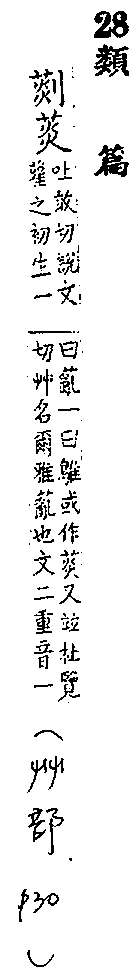 28類篇
𦵹菼
吐敢切說文
雚之初生一
曰薍一曰鵻或作菼又竝杜覽
切艸名爾雅薍也文二重音一
(艸部 P30)